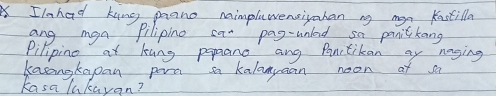 Ilahad kung paano naimpluwensiyahan ng mga Kastilla
ang mga Pilipino sa pag-unlad sa panitikang
Pilipino at kung papaano ang Panitikan ay naging
kasangkapan para sa kalayaan noon at sa
kasalukuyan?